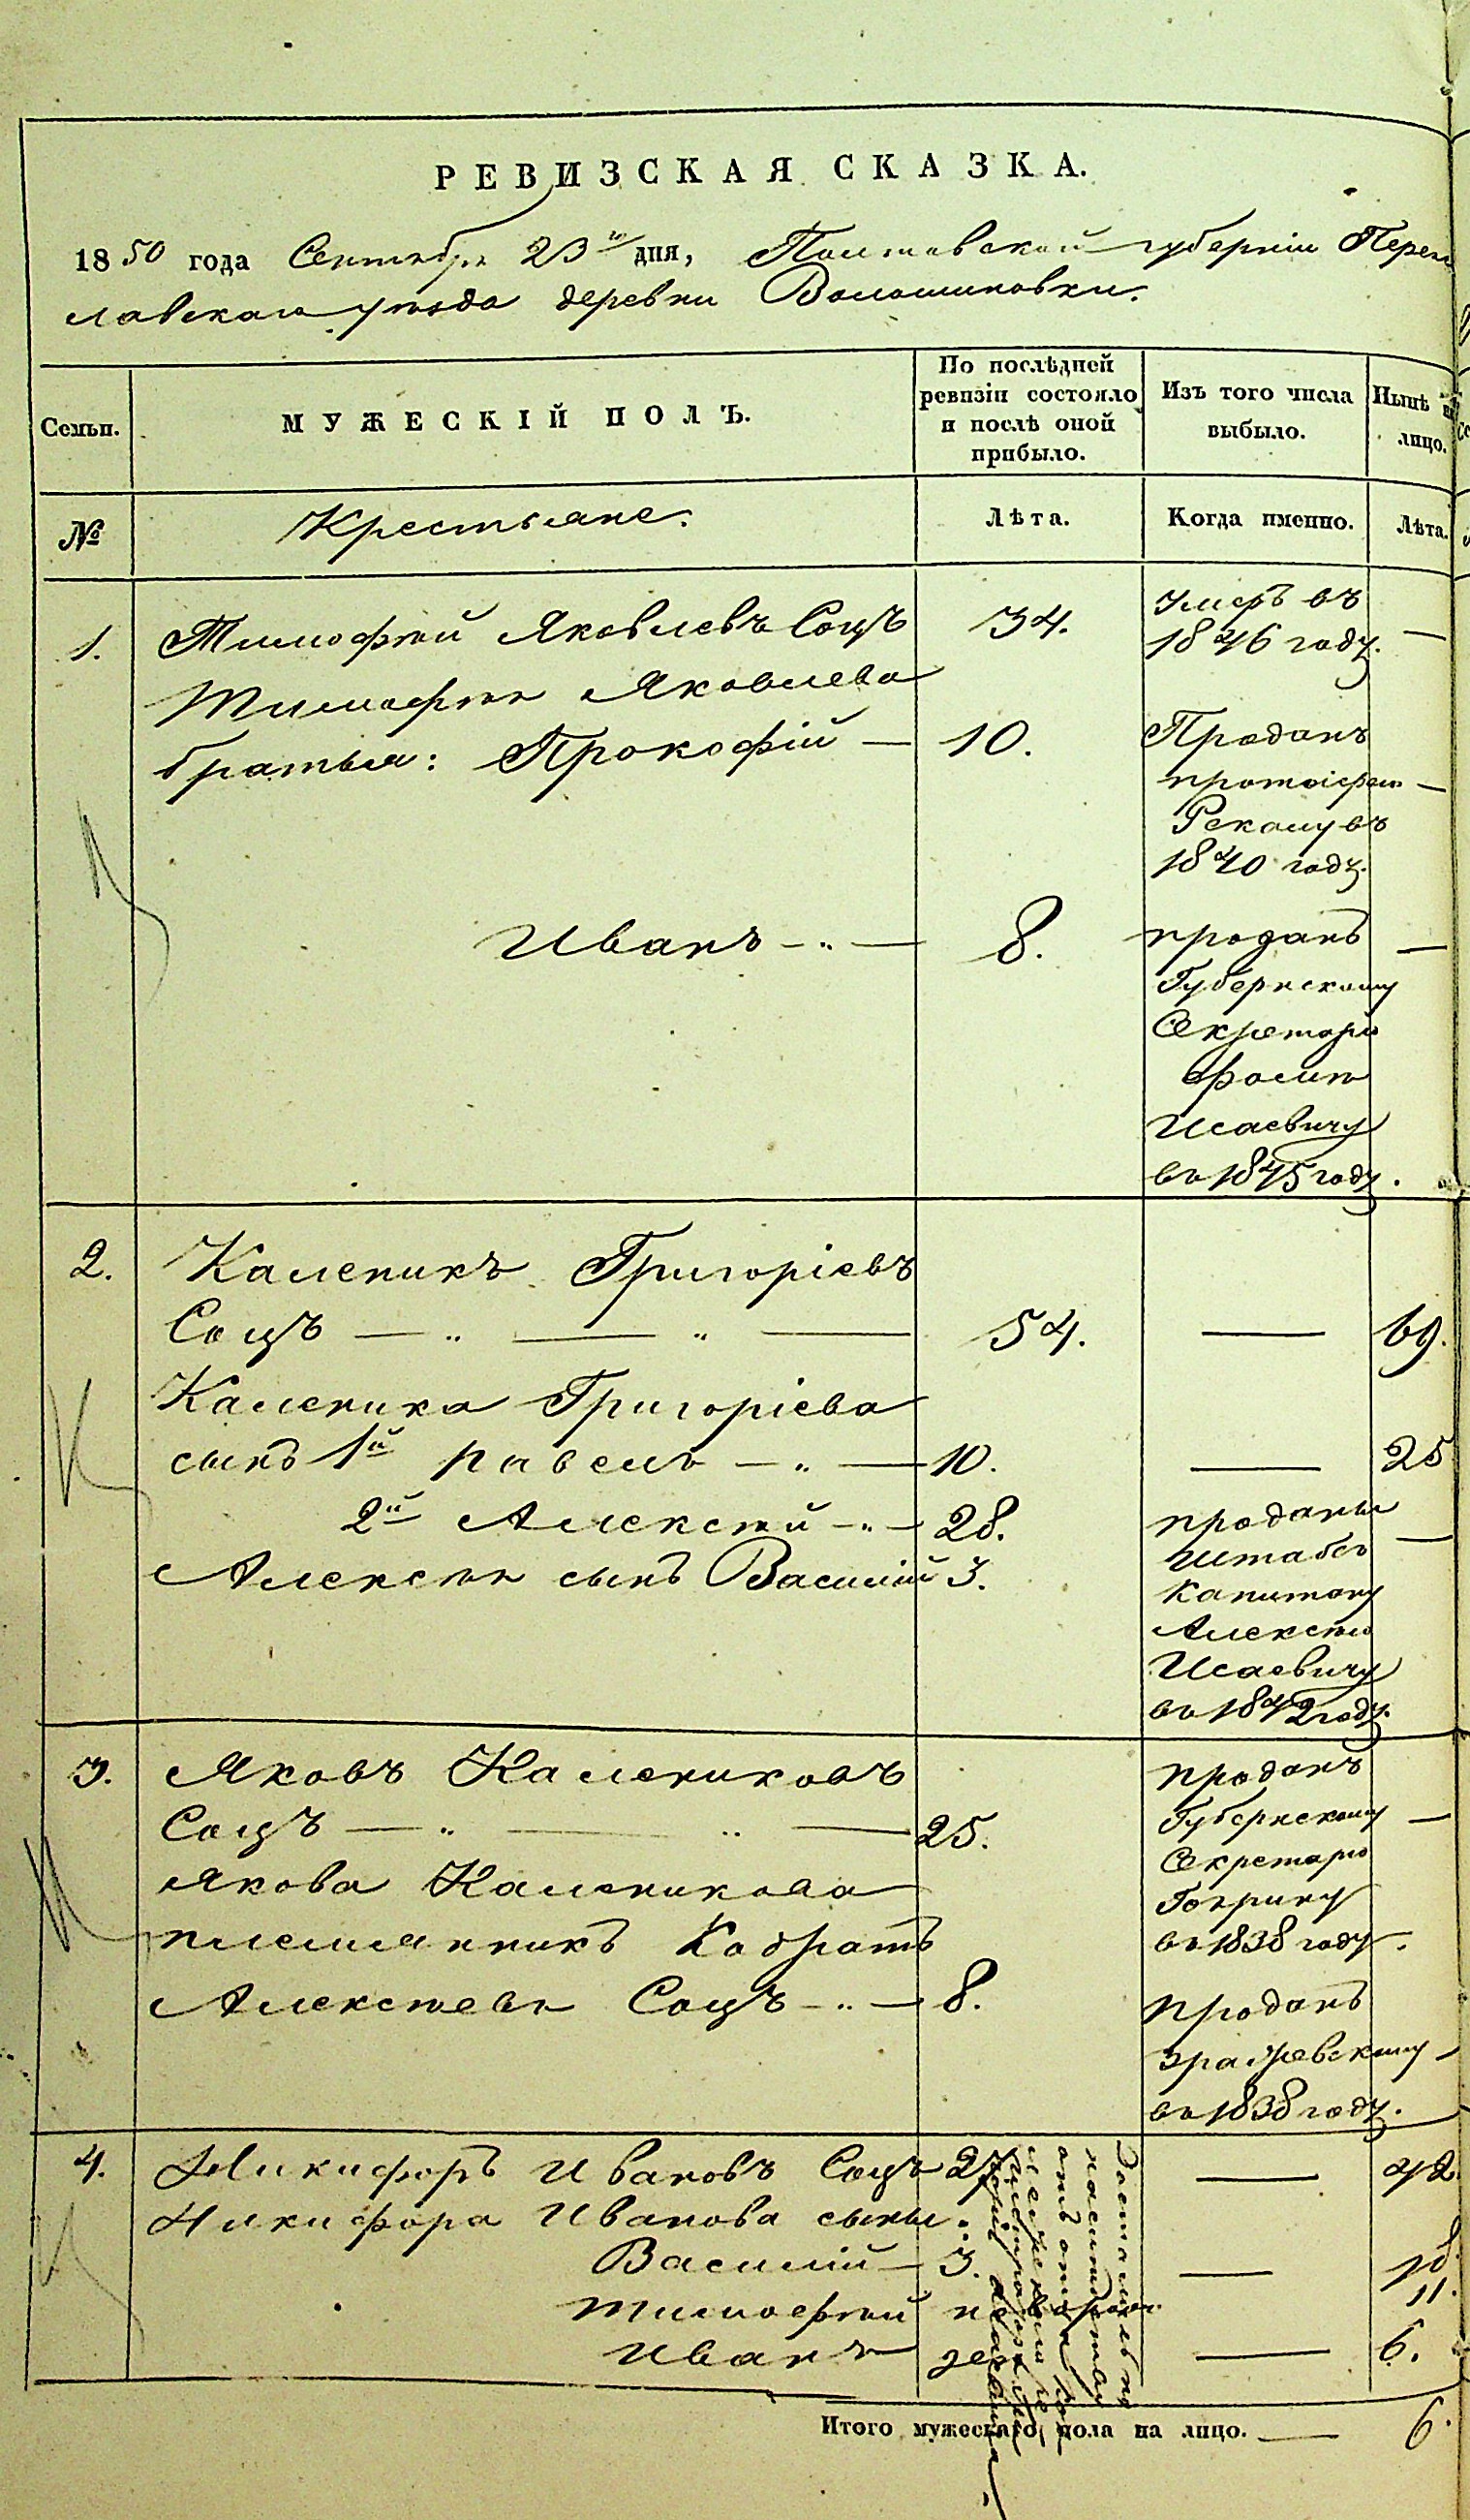 РЕВИЗСКАЯ СКАЗКА.
1850 года Сентября 23го дня, Полтавской губерніи Перея
славскаго уѣзда деревни Волошиновки.
Семьи.
МУЖЕСКІЙ ПОЛЪ.
По послѣдней
ревизіи состояло
и послѣ оной
прибыло.
Изъ того числа
выбыло.
Нынѣ на
лицо.
№
Крестьяне.
Лѣта.
Когда именно.
Лѣта.
1. Тимофѣй Яковлевъ Соцъ 34. Умеръ въ
1846 году. —
Тимофѣя Яковлева
братья: Прокофій — 10. Проданъ
протоіерею —
въ
1840 году.
Иванъ — 8. проданъ —
Губернскому
Секретарю
Исаевичу
въ 1845 году.
2. Каленикъ Григоріевъ
Соцъ — „ — „ — 54. — 69.
Каленика Григоріева
сынъ 1й Павелъ — „ — 10. — 25
2й Алексѣй — „ — 28. проданы
Алексѣя сынъ Василій 3. Штабсъ —
Капитану
Алексѣю
Исаевичу
въ 1842 году.
3. Яковъ Калениковъ проданъ
Соцъ — „ — „ — 25. Губернскому —
Секретарю
Якова Каленикова
въ 1838 году.
племянникъ Кодратъ
Алексѣевъ Соцъ — „ — 8. проданъ
въ 1838 году.
4. Никифоръ Ивановъ Соцъ 27 — 42
Никифора Иванова сыны:
Василій — 3. — 18.
Тимофѣй 11.
Иванъ — 6.
Итого мужескаго пола на лицо. — 6.